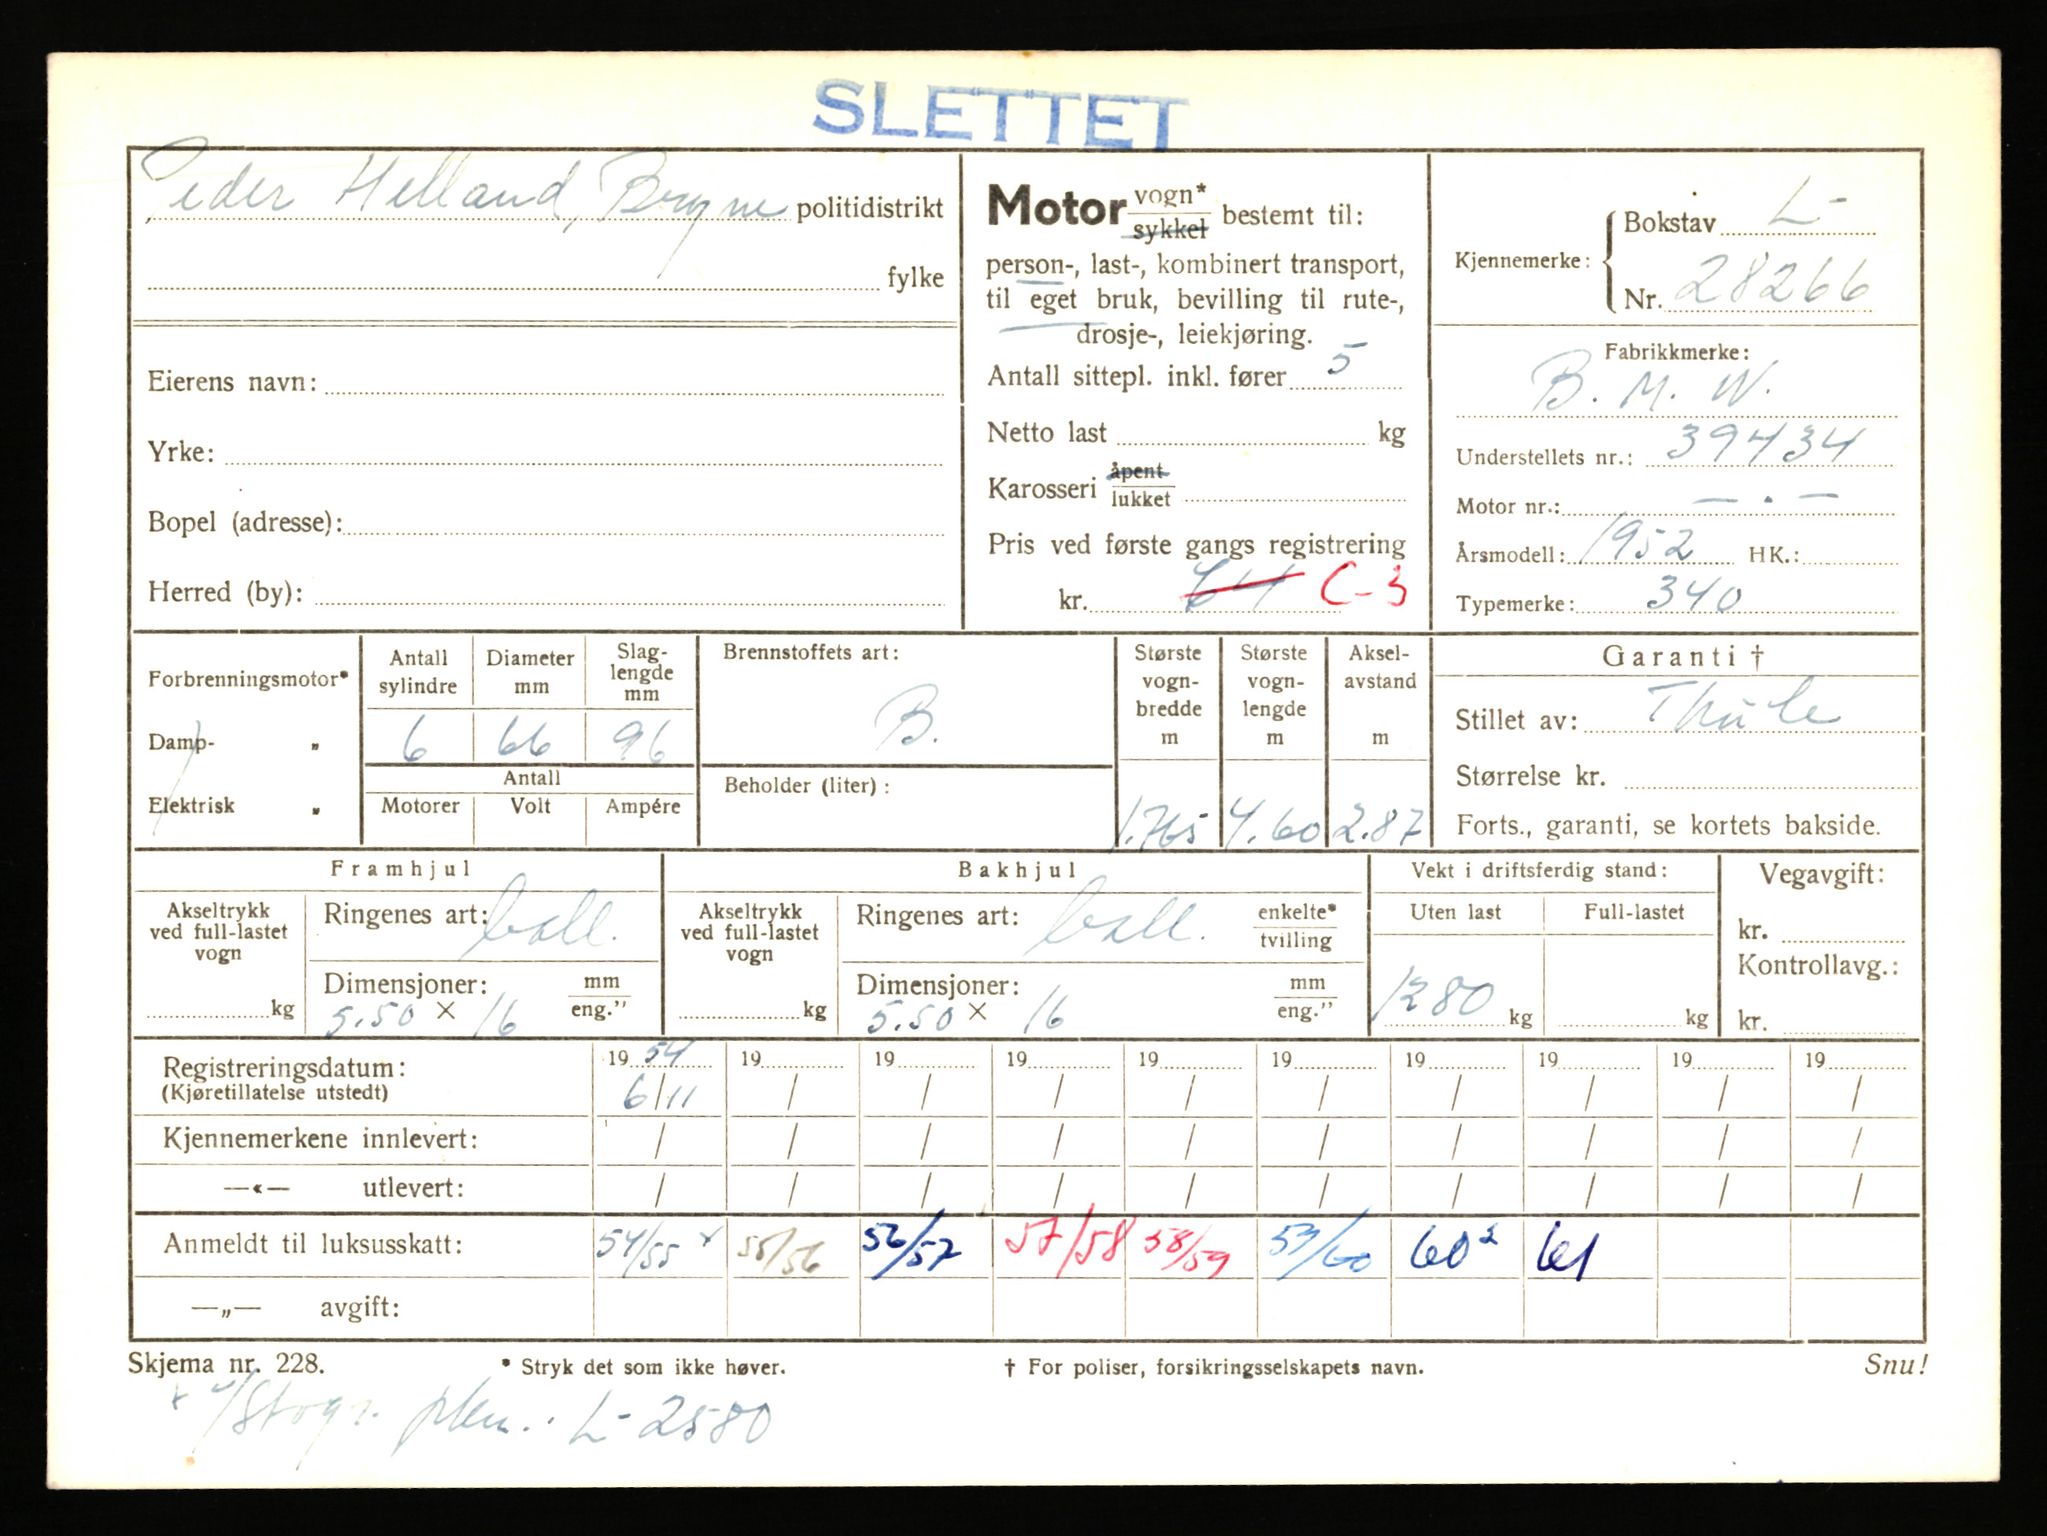 SLETTET
Peder Helland, Bryne politidistrikt
fylke
Eierens navn:
Yrke:
Bopel (adresse):
Herred (by):
Motor vogn* sykkel bestemt til:
person-, last-, kombinert transport,
til eget bruk, bevilling til rute-,
drosje-, leiekjøring.
Antall sittepl. inkl. fører 5
Netto last kg
Karosseri åpent lukket
Pris ved første gangs registrering
kr. C-3
Kjennemerke: Bokstav L-
Nr. 28266
Fabrikkmerke:
B. M. W.
Understellets nr.: 39434
Motor nr.: — . —
Årsmodell: 1952 HK.:
Typemerke: 340
Forbrenningsmotor*
Damp- „
Elektrisk „
Antall sylindre Diameter mm Slag-lengde mm
6 66 96
Antall
Motorer Volt Ampére
Brennstoffets art:
B.
Beholder (liter):
Største vogn-bredde m Største vogn-lengde m Aksel-avstand m
1.765 4.60 2.87
Garanti †
Stillet av: Thule
Størrelse kr.
Forts., garanti, se kortets bakside.
Framhjul
Akseltrykk ved full-lastet vogn
kg
Ringenes art: ball.
Dimensjoner: mm eng."
5.50 × 16
Bakhjul
Akseltrykk ved full-lastet vogn
kg
Ringenes art: ball. enkelte* tvilling
Dimensjoner: mm eng."
5.50 × 16
Vekt i driftsferdig stand:
Uten last Full-lastet
1280 kg kg
Vegavgift:
kr.
Kontrollavg.:
kr.
Registreringsdatum: 19 54 19 19 19 19 19 19 19 19 19
(Kjøretillatelse utstedt) 6/11 / / / / / / / / /
Kjennemerkene innlevert: / / / / / / / / / /
—«— utlevert: / / / / / / / / / /
Anmeldt til luksusskatt: 54/55 x 55/56 56/57 57/58 58/59 59/60 60² 61
—„— avgift:
Skjema nr. 228. * Stryk det som ikke høver. † For poliser, forsikringsselskapets navn. Snu!
L-2580